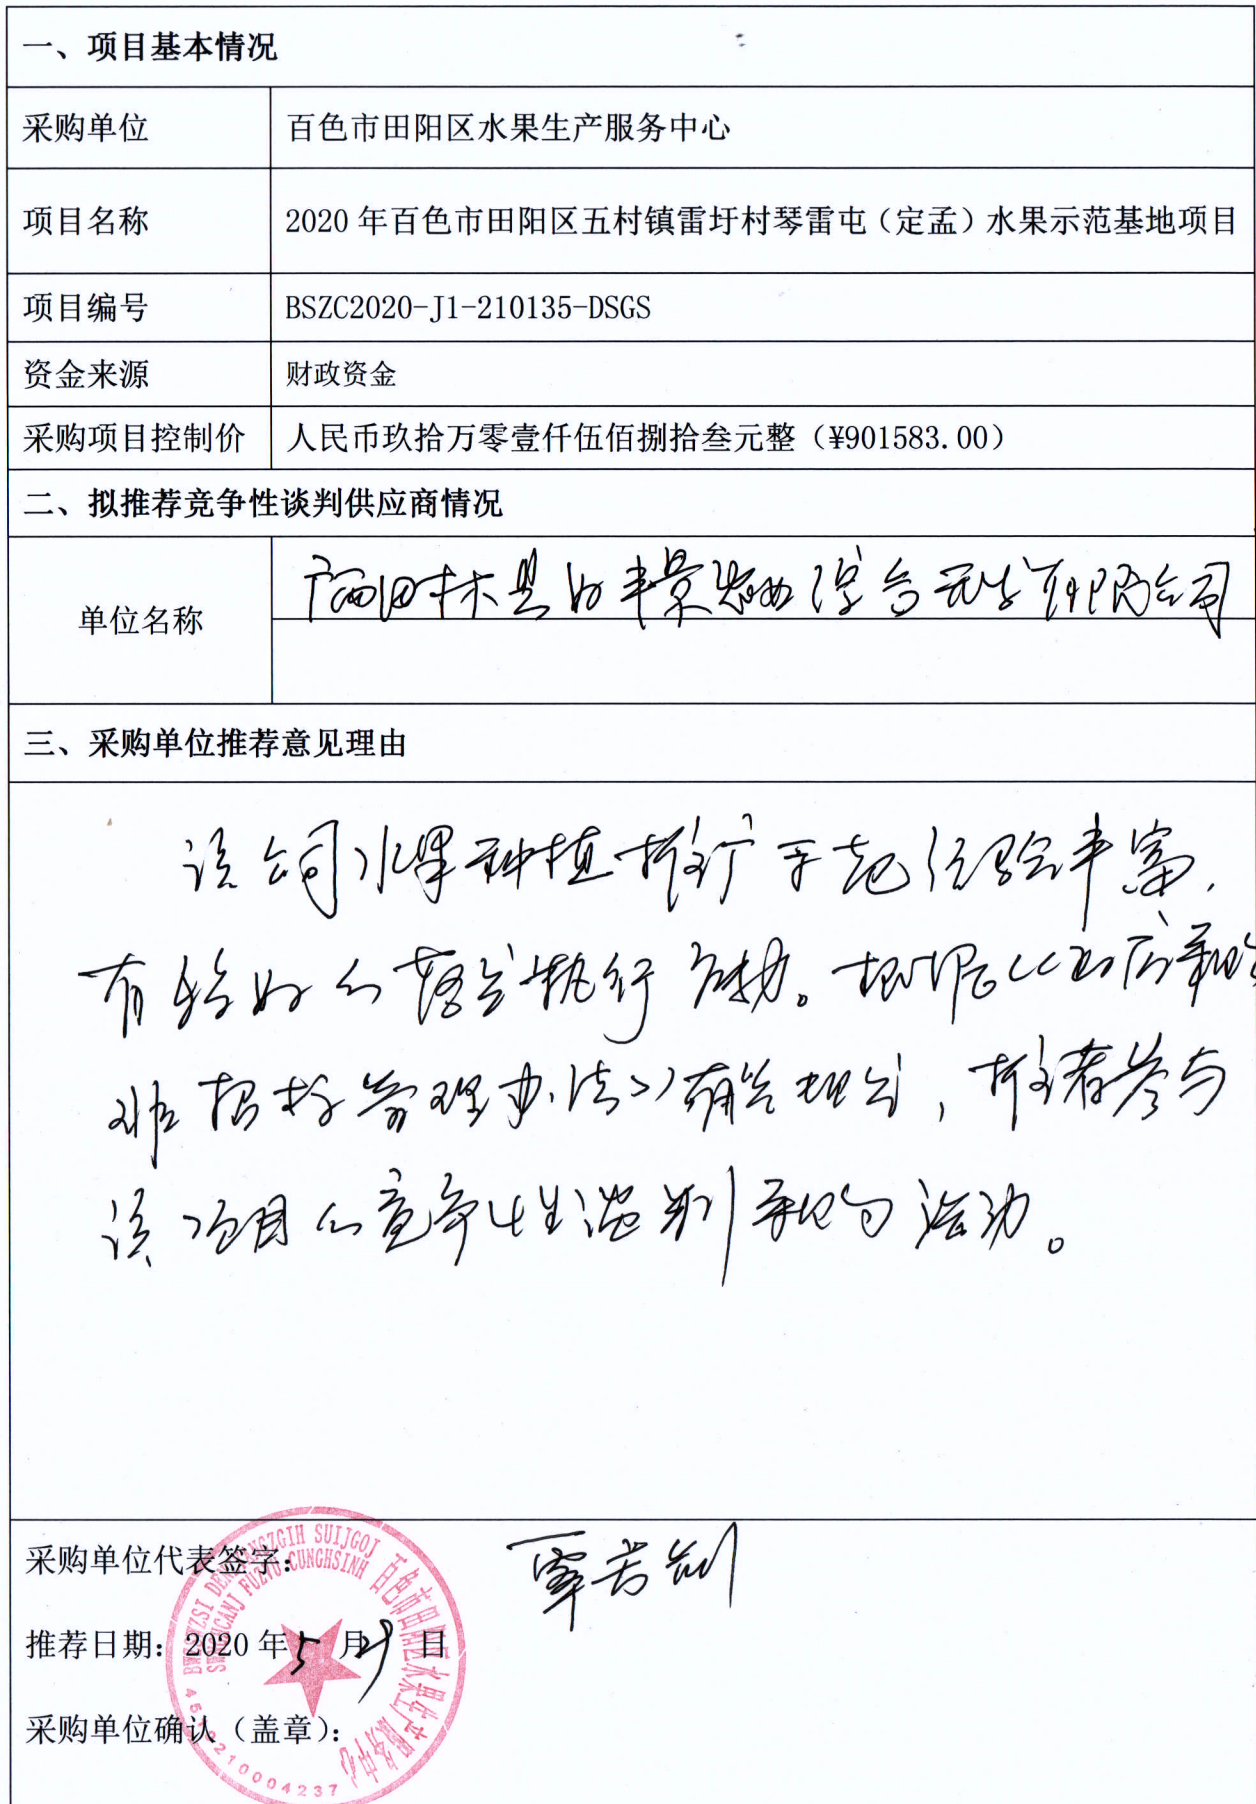 一、项目基本情况
采购单位 百色市田阳区水果生产服务中心
项目名称 2020年百色市田阳区五村镇雷圩村琴雷屯（定孟）水果示范基地项目
项目编号 BSZC2020-J1-210135-DSGS
资金来源 财政资金
采购项目控制价 人民币玖拾万零壹仟伍佰捌拾叁元整（¥901583.00）
二、拟推荐竞争性谈判供应商情况
单位名称 广西田林县 丰景农业 有限公司
三、采购单位推荐意见理由
该公司水果种植推广 经验丰富，
有较好的落实执行能力。根据《政府采购
非招标管理办法》有关规定，推荐参与
该项目的竞争性谈判采购活动。
采购单位代表签字： 覃芳
推荐日期：2020年5月29日
采购单位确认（盖章）：
SUIJGOJ
FUZVU CUNGHSINH
百色市田阳区水果生产服务中心
4510210004237